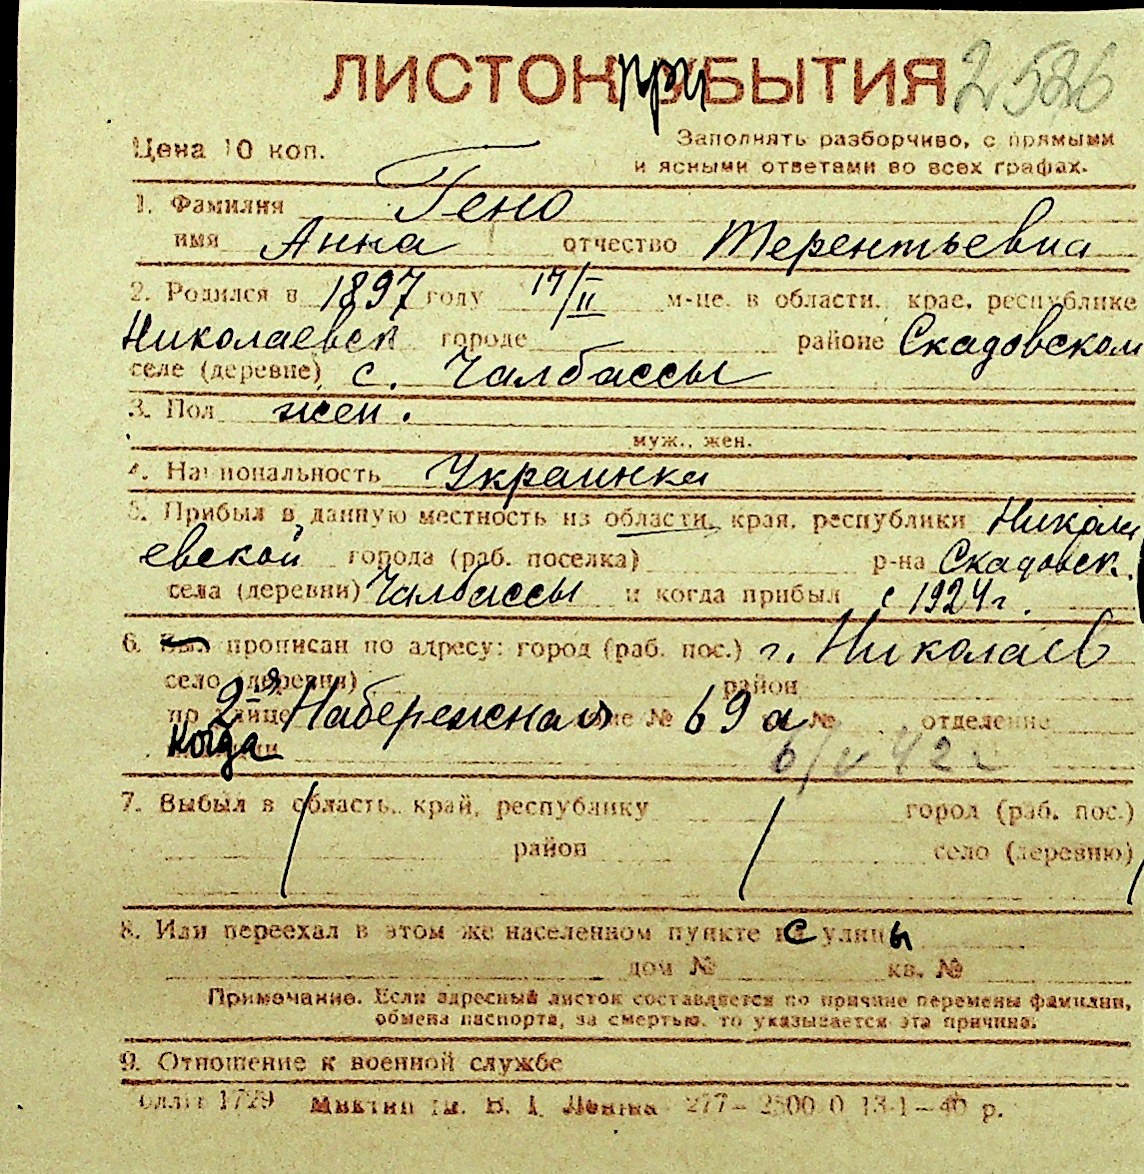 ЛИСТОК ПРИБЫТИЯ 2586
Цена 10 коп. Заполнять разборчиво, с прямыми
и ясными ответами во всех графах.
1. Фамилия Гено
имя Анна отчество Терентьевна
2. Родился в 1897 году 17/II м-це. в области, крае, республике
Николаевск городе районе Скадовском
селе (деревне) с. Чалбассы
3. Пол жен.
муж., жен.
4. Национальность Украинка
5. Прибыл в данную местность из области, края, республики Никола
евской города (раб. поселка) р-на Скадовск.
села (деревни) Чалбассы и когда прибыл с 1924 г.
6. Был прописан по адресу: город (раб. пос.) г. Николаев
село (деревня) район
по улице 2-я Набережная № 69 а № отделение
Когда милиции 6/V 42 г
7. Выбыл в область, край, республику город (раб. пос.)
район село (деревню)
8. Или переехал в этом же населенном пункте с улицы
дом № кв. №
Примечание. Если адресный листок составляется по причине перемены фамилии,
обмена паспорта, за смертью, то указывается эта причина.
9. Отношение к военной службе
1729 им. В. І. Леніна 277–2500 0 13-1–40 р.